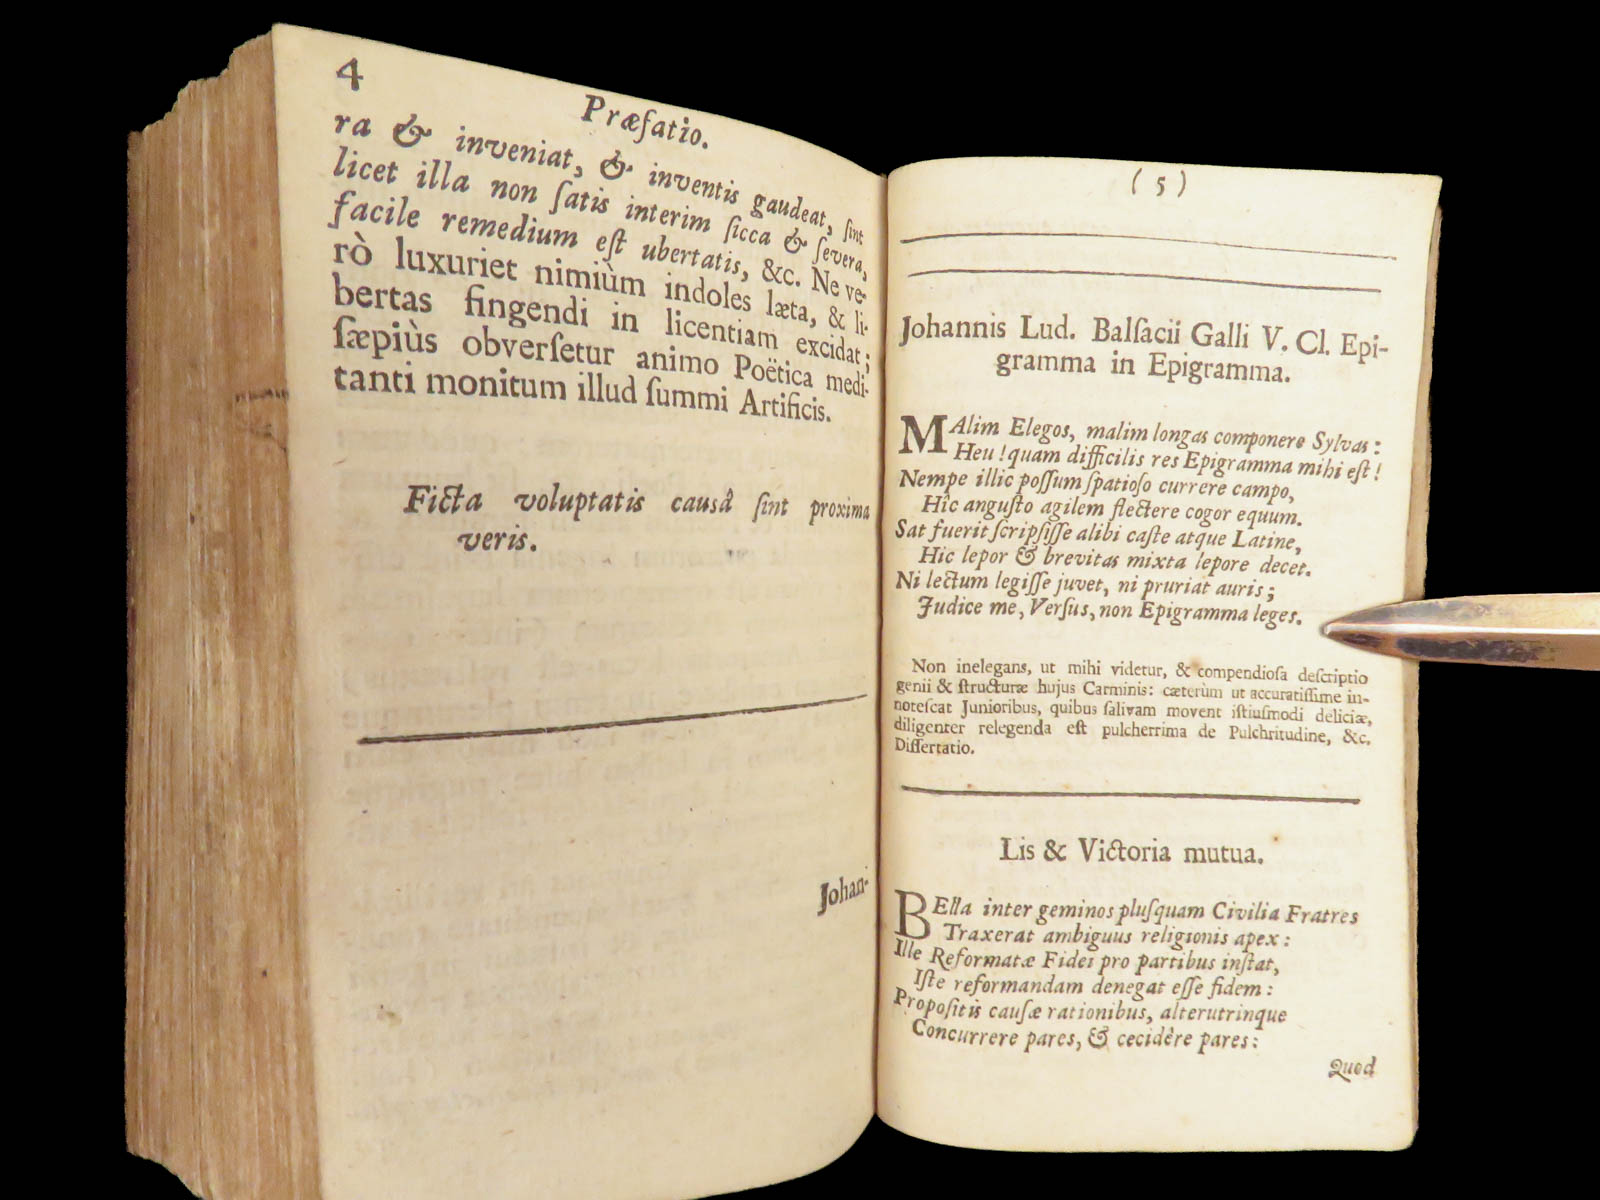 4
Præfatio.
ra & inveniat, & inventis gaudeat, ſint
licet illa non ſatis interim ſicca & ſevera,
facile remedium eſt ubertatis, &c. Ne ve-
rò luxuriet nimiùm indoles læta, & li-
bertas fingendi in licentiam excidat;
ſæpiùs obverſetur animo Poëtica medi-
tanti monitum illud ſummi Artificis.
Ficta voluptatis causâ ſint proxima
veris.
Johan-
( 5 )
Johannis Lud. Balſacii Galli V. Cl. Epi-
gramma in Epigramma.
MAlim Elegos, malim longas componere Sylvas:
Heu! quam difficilis res Epigramma mihi eſt!
Nempe illic poſſum ſpatioſo currere campo,
Hîc anguſto agilem flectere cogor equum.
Sat fuerit ſcripſiſſe alibi caſte atque Latine,
Hic lepor & brevitas mixta lepore decet.
Ni lectum legiſſe juvet, ni pruriat auris;
Judice me, Verſus, non Epigramma leges.
Non inelegans, ut mihi videtur, & compendioſa deſcriptio
genii & ſtructuræ hujus Carminis: cæterùm ut accuratiſſime in-
noteſcat Junioribus, quibus ſalivam movent iſtiuſmodi deliciæ,
diligenter relegenda eſt pulcherrima de Pulchritudine, &c.
Diſſertatio.
Lis & Victoria mutua.
BElla inter geminos pluſquam Civilia Fratres
Traxerat ambiguus religionis apex:
Ille Reformatæ Fidei pro partibus inſtat,
Iſte reformandam denegat eſſe fidem:
Propoſitis cauſæ rationibus, alterutrinque
Concurrere pares, & cecidêre pares:
Quod